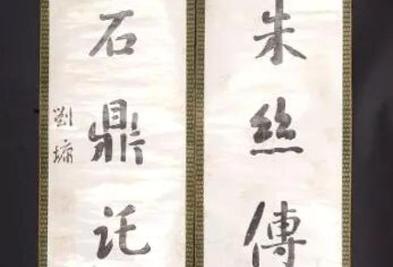 朱絲傳
石鼎託
劉墉